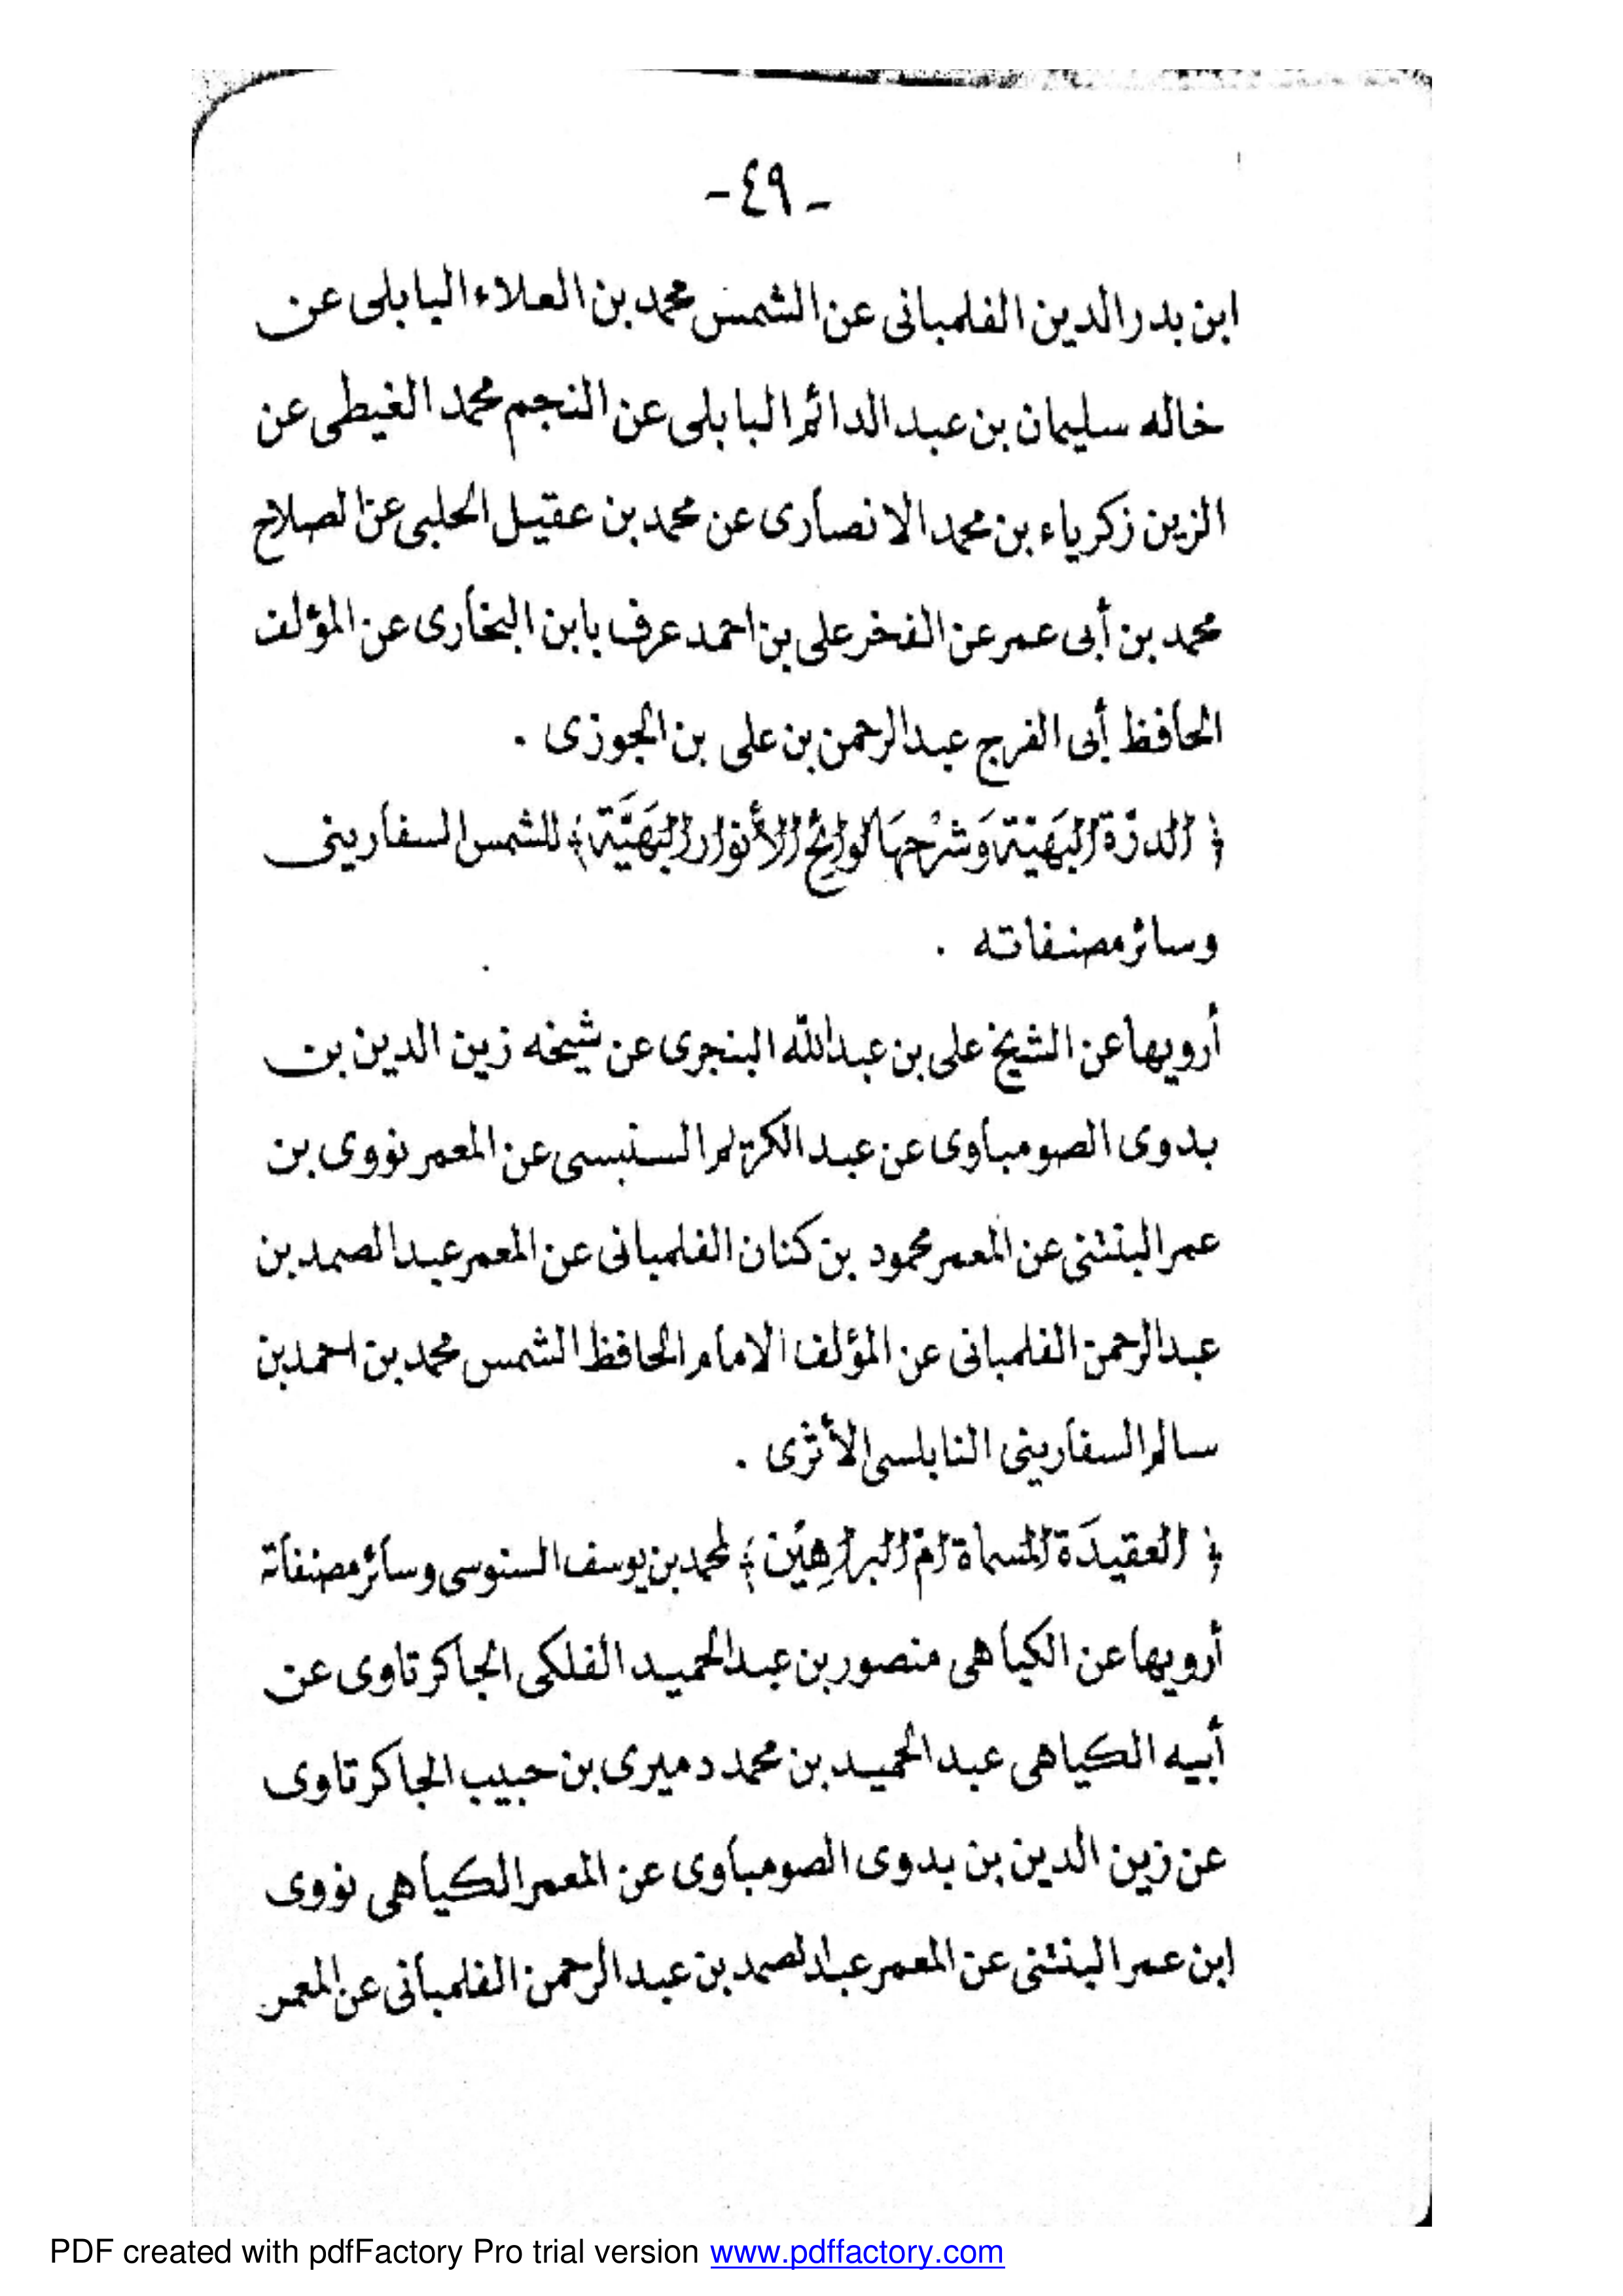 - ٤٩ -
ابن بدر الدين الفلمبانى عن الشمس محمد بن العلاء البابلى عن
خاله سليمان بن عبد الدائم البابلى عن النجم محمد الغيطى عن
الزين زكرياء بن محمد الانصارى عن محمد بن عقيل الحلبى عن الصلاح
محمد بن أبى عمر عن الفخر على بن احمد عرف بابن البخارى عن المؤلف
الحافظ أبى الفرج عبد الرحمن بن على بن الجوزى .
﴿ الدرّة البَهيّة وَشَرْحهَا لوائح الأنوار البَهَيَّة ﴾ للشمس السفارينى
وسائر مصنفاته .
أرويها عن الشيخ على بن عبد الله البنجرى عن شيخه زين الدين بن
بدوى الصومباوى عن عبد الكريم السنبسى عن المعمر نووى بن
عمر البنتنى عن المعمر محمود بن كنان الفلمبانى عن المعمر عبد الصمد بن
عبد الرحمن الفلمبانى عن المؤلف الامام الحافظ الشمس محمد بن احمد بن
سالم السفارينى النابلسى الأثرى .
﴿ العقيدَة المسماة امّ البراهِين ﴾ لمحمد بن يوسف السنوسى وسائر مصنفاته
أرويها عن الكياهى منصور بن عبد الحميد الفلكى الجاكرتاوى عن
أبيه الكياهى عبد الحميد بن محمد دميرى بن حبيب الجاكرتاوى
عن زين الدين بن بدوى الصومباوى عن المعمر الكياهى نووى
ابن عمر البنتنى عن المعمر عبد الصمد بن عبد الرحمن الفلمبانى عن المعمر
PDF created with pdfFactory Pro trial version www.pdffactory.com